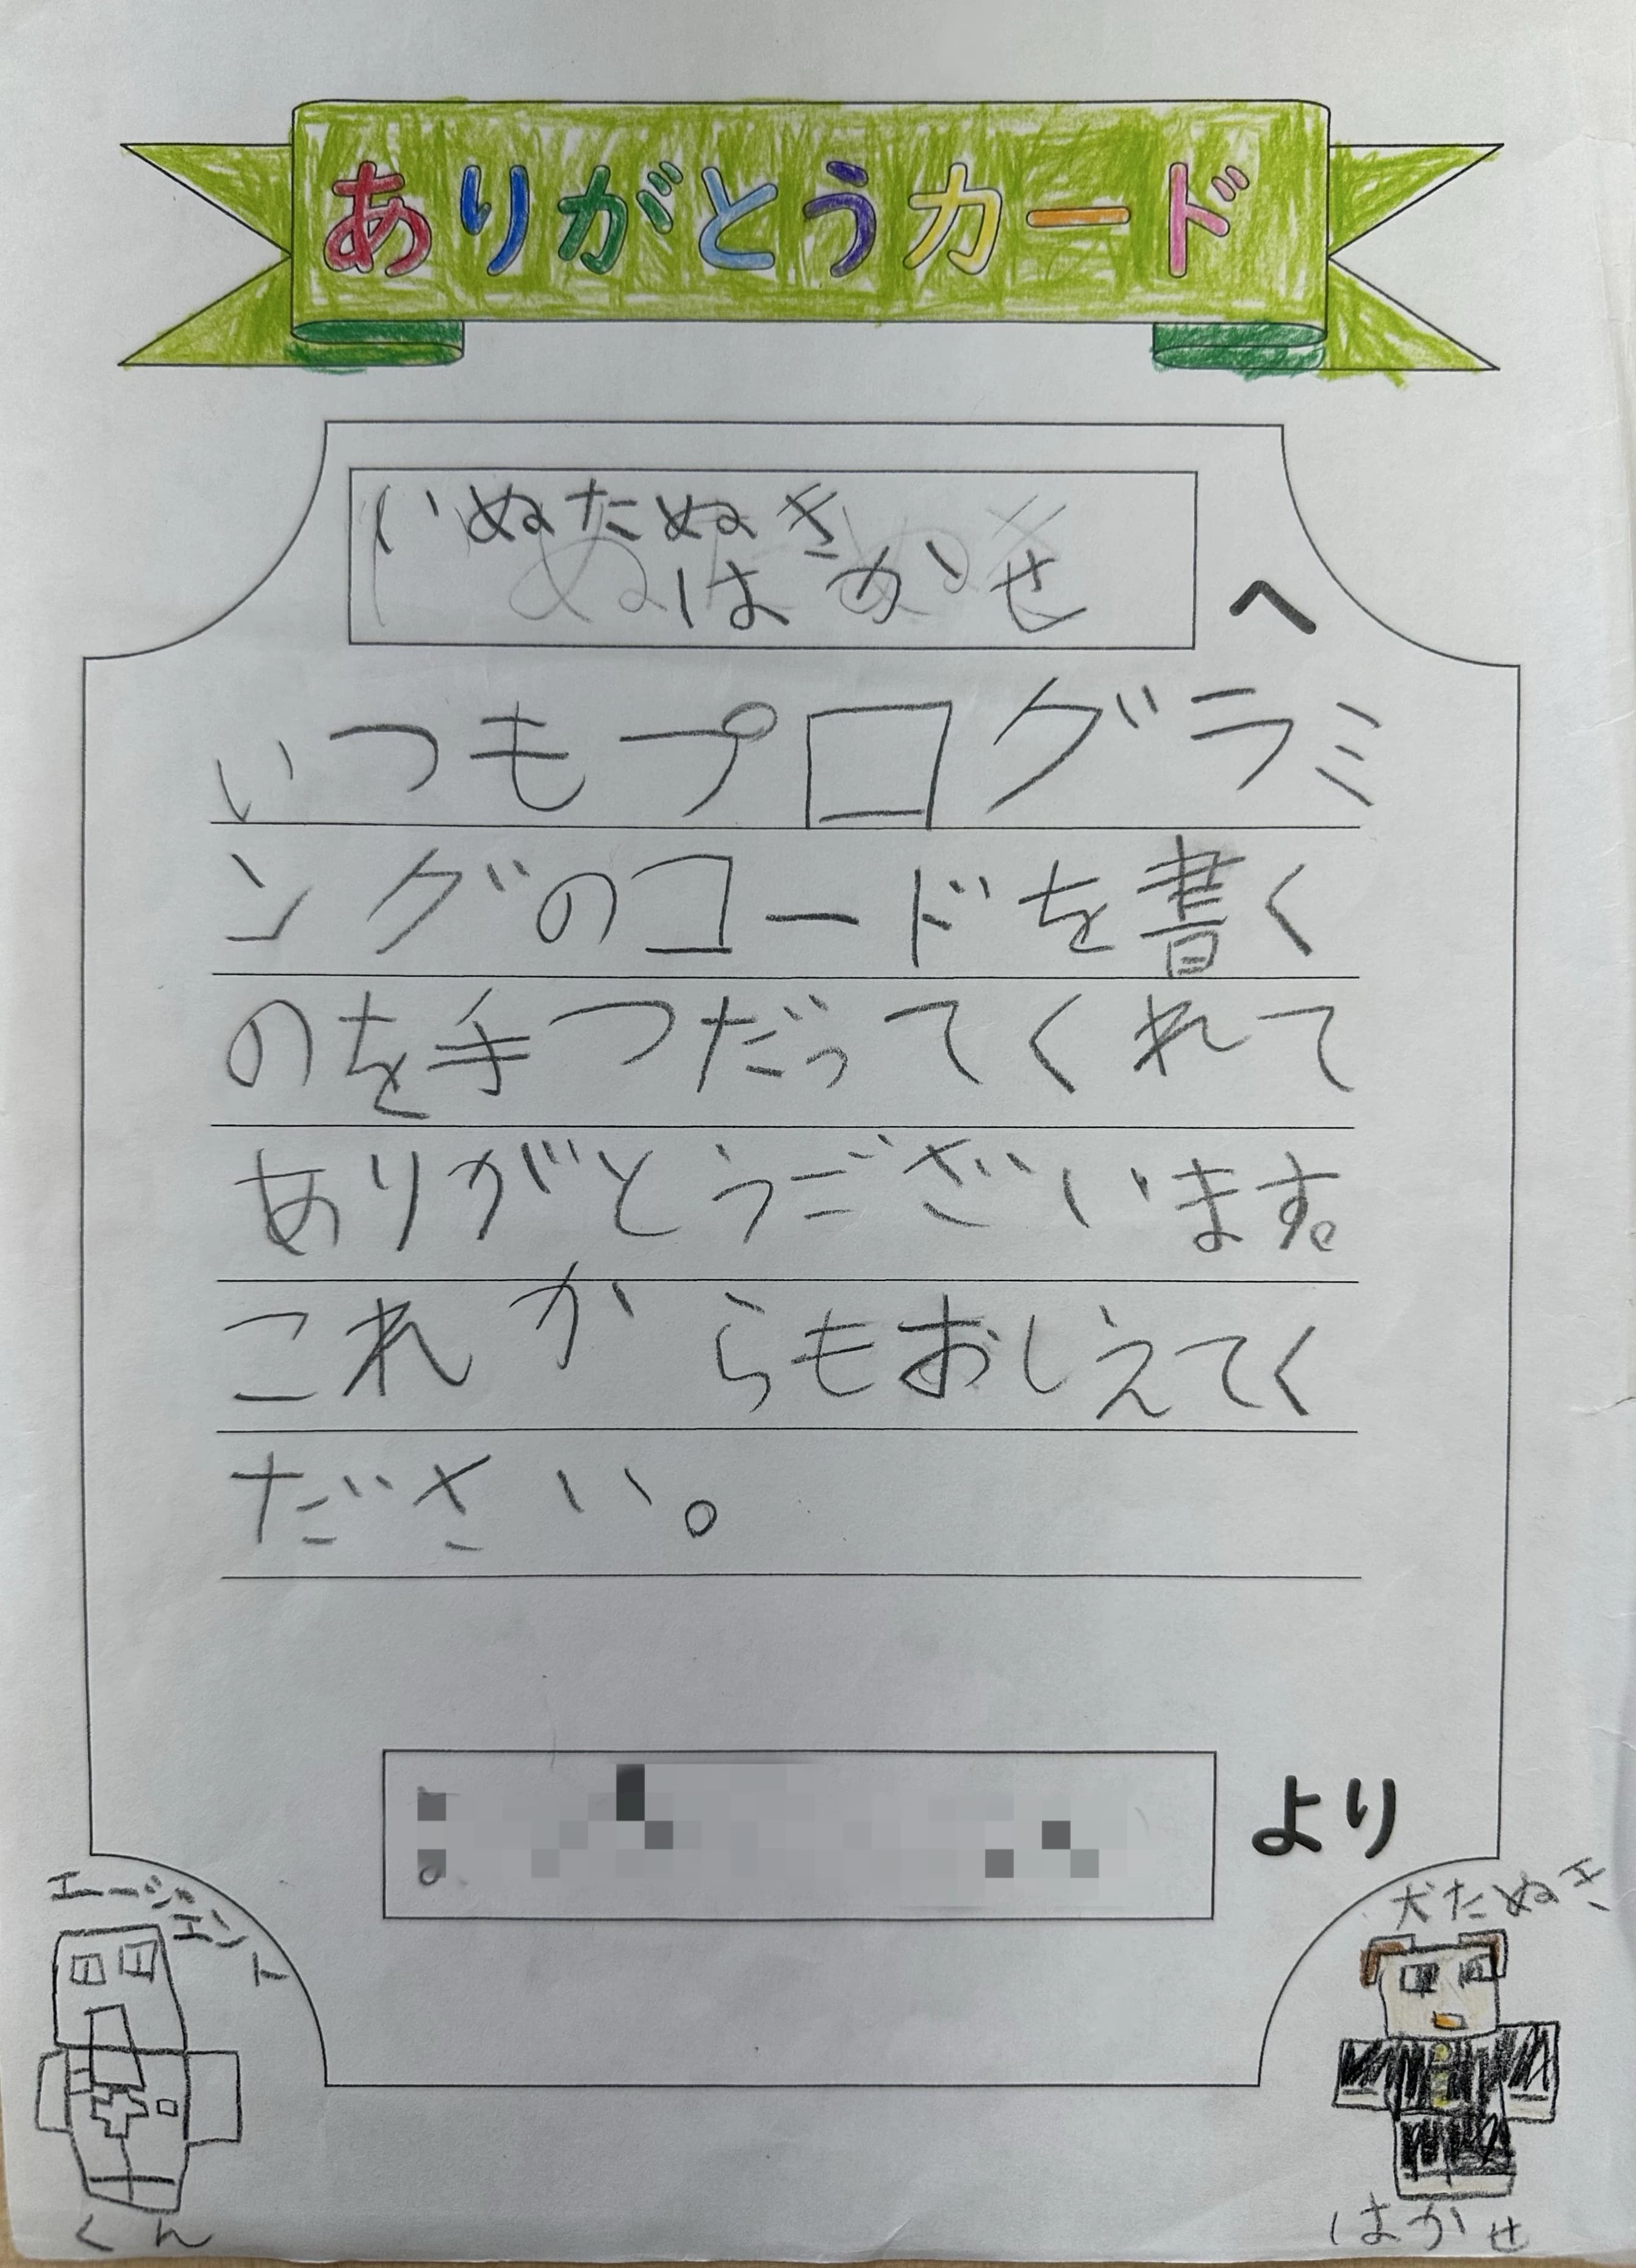 ありがとうカード
いぬたぬき
はかせ
へ
いつもプログラミ
ングのコードを書く
のを手つだってくれて
ありがとうございます。
これからもおしえてく
ださい。
より
エージェント
くん
犬たぬき
はかせ